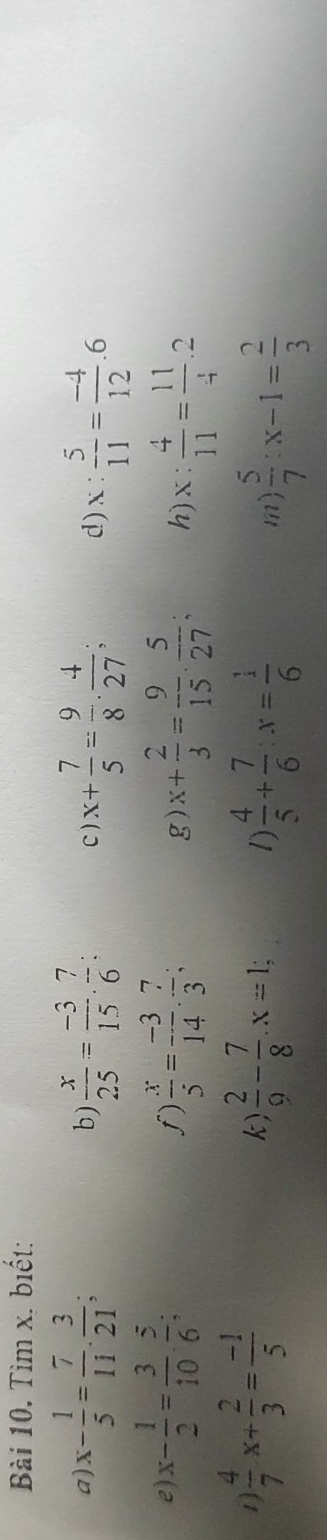 Bài 10. Tìm x, biết:
a) x - 1/5 = 7/11 . 3/21; b) x/25 = -3/15 . 7/6; c) x + 7/5 = 9/8 . 4/27; d) x : 5/11 = -4/12 . 6
e) x - 1/2 = 3/10 . 5/6; f) x/5 = -3/14 . 7/3; g) x + 2/3 = 9/15 . 5/27; h) x : 4/11 = 11/4 . 2
i) 4/7 x + 2/3 = -1/5 k) 2/9 - 7/8 . x = 1; l) 4/5 + 7/6 : x = 1/6 m) 5/7 : x - 1 = 2/3